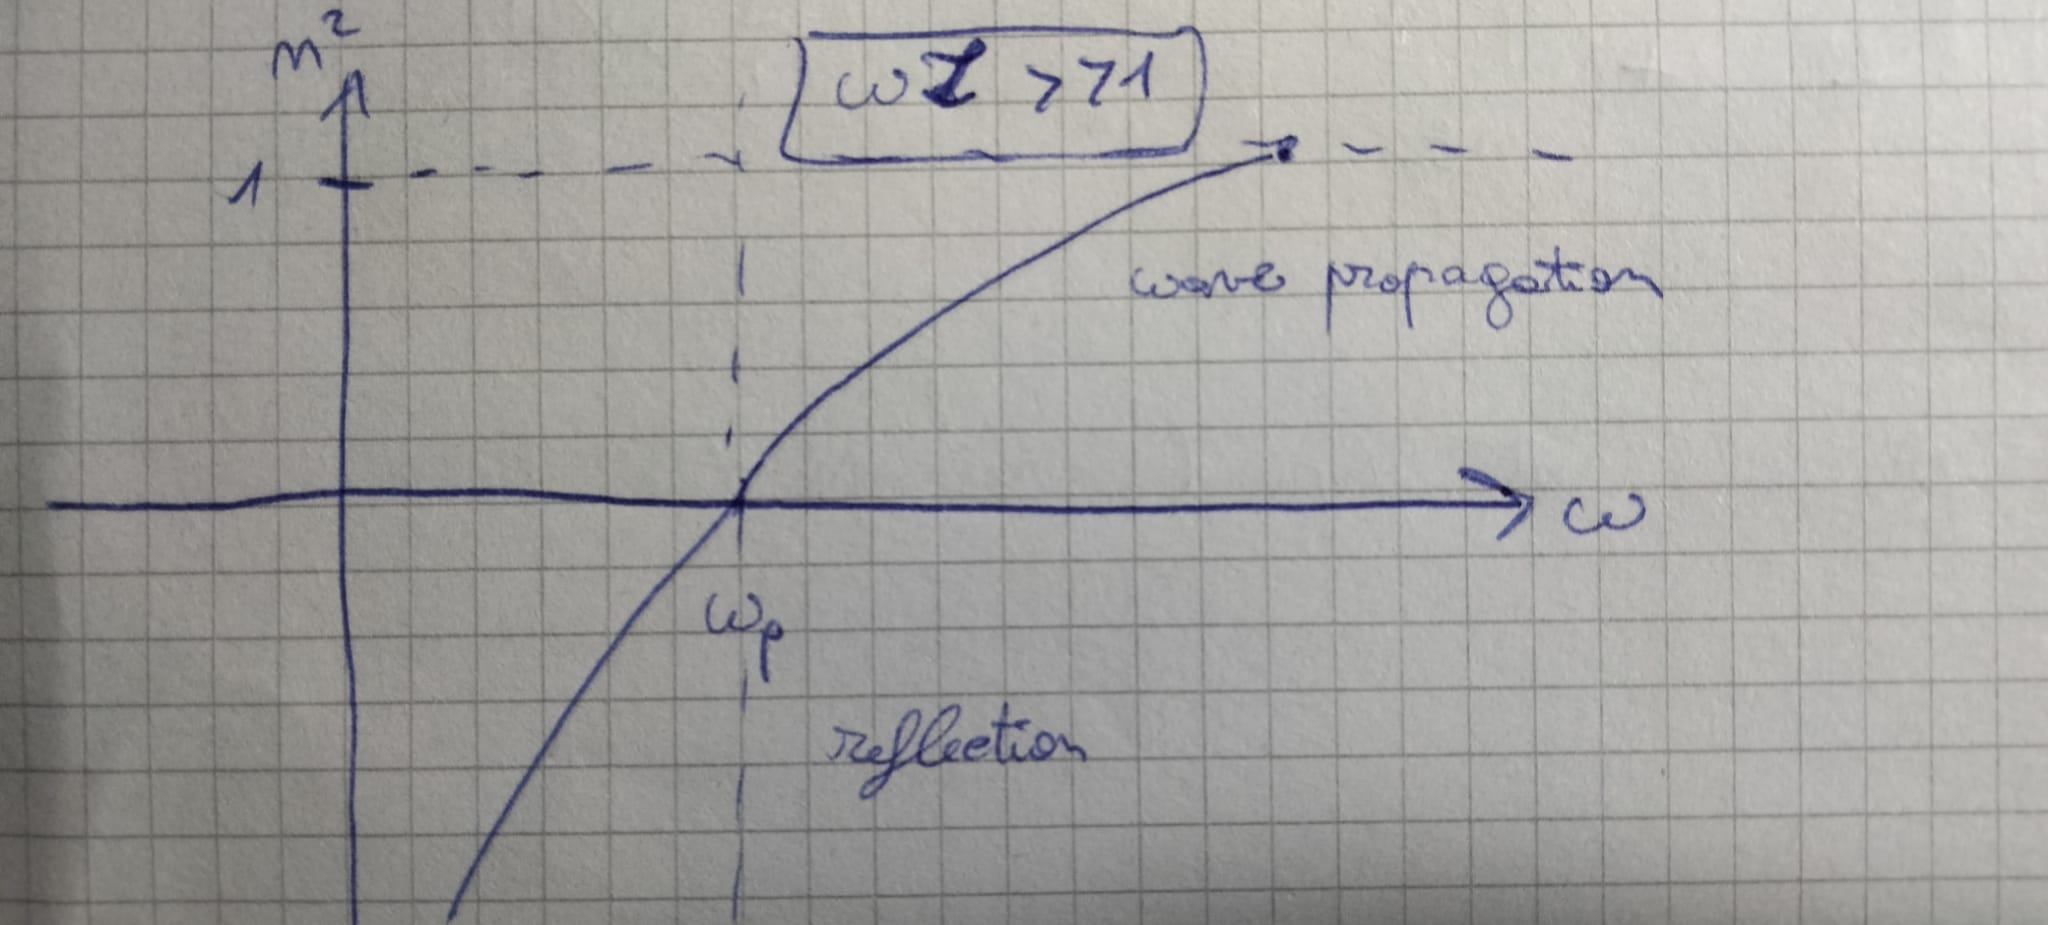 n²
ωτ >>1
1
wave propagation
ω
ωₚ
reflection